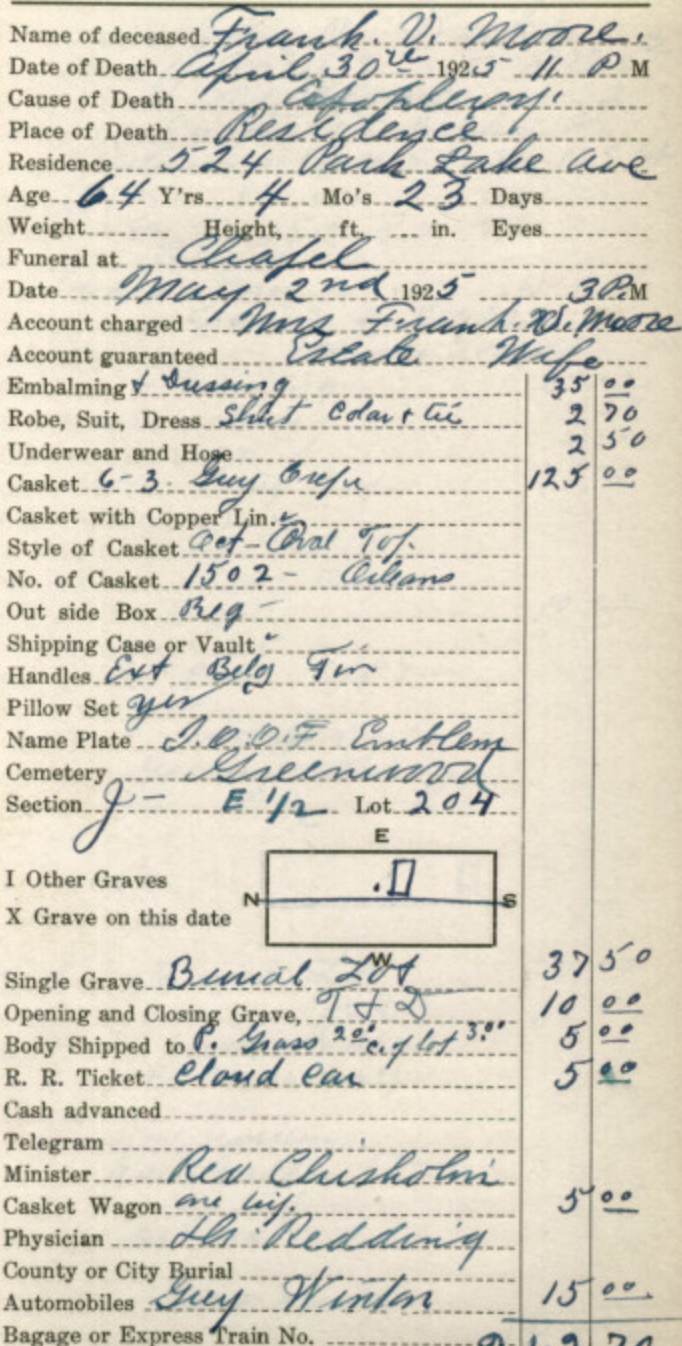 Name of deceased Frank. V. Moore.
Date of Death April 30th 1925 11 P M
Cause of Death Apoplexy.
Place of Death Residence
Residence 524 Park Lake Ave
Age 64 Y'rs 4 Mo's 23 Days
Weight Height, ft. in. Eyes
Funeral at Chapel
Date May 2nd 1925 3 P.M
Account charged Mrs Frank. V. Moore
Account guaranteed Estate Wife
Embalming & Dressing 35 00
Robe, Suit, Dress Shirt Colar & tie 2 70
Underwear and Hose 2 50
Casket 6-3. Grey Crepe 125 00
Casket with Copper Lin.
Style of Casket Oct-Oval Top.
No. of Casket 1502 - Orleans
Out side Box Reg -
Shipping Case or Vault
Handles Ext
Pillow Set yes
Name Plate I.O.O.F Emblem
Cemetery Greenwood
Section J - E 1/2 Lot 204
E
I Other Graves
N S
X Grave on this date
W
Single Grave Burial Lot 37 50
Opening and Closing Grave, T & D 10 00
Body Shipped to P. Grass 2 00 c. of lot 3.00 5 00
R. R. Ticket Cloud Car 5 00
Cash advanced
Telegram
Minister Rev Chisholm
Casket Wagon one 5 00
Physician Dr. Redding
County or City Burial
Automobiles Grey Winton 15 00
Bagage or Express Train No.